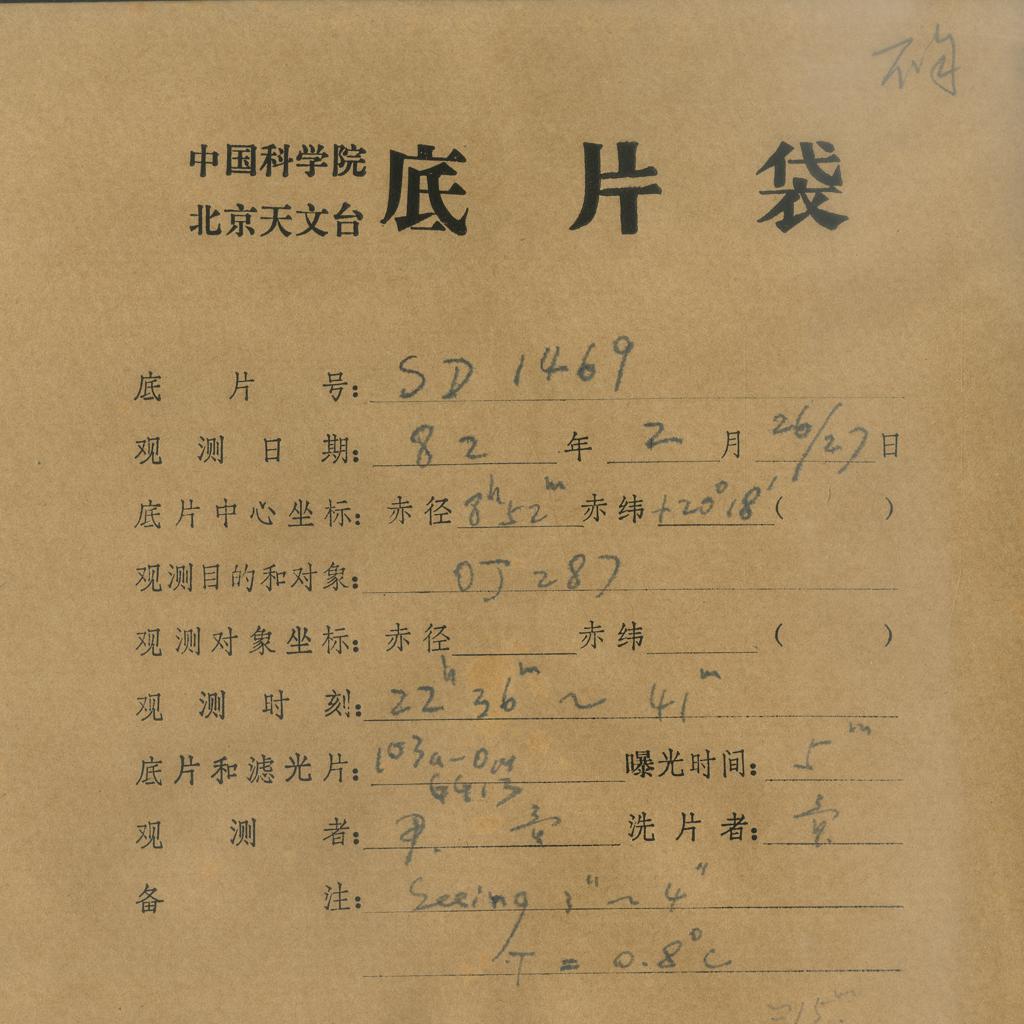 中国科学院
北京天文台 底片袋
底片号: SD 1469
观测日期: 82年2月26/27日
底片中心坐标: 赤径 8h52m 赤纬 +20°18′ ( )
观测目的和对象: OJ 287
观测对象坐标: 赤径 赤纬 ( )
观测时刻: 22h 36m ~ 41m
底片和滤光片: 103a-O 曝光时间: 5m
观测者: 洗片者:
备注: Seeing 3″ ~ 4″
T = 0.8°C